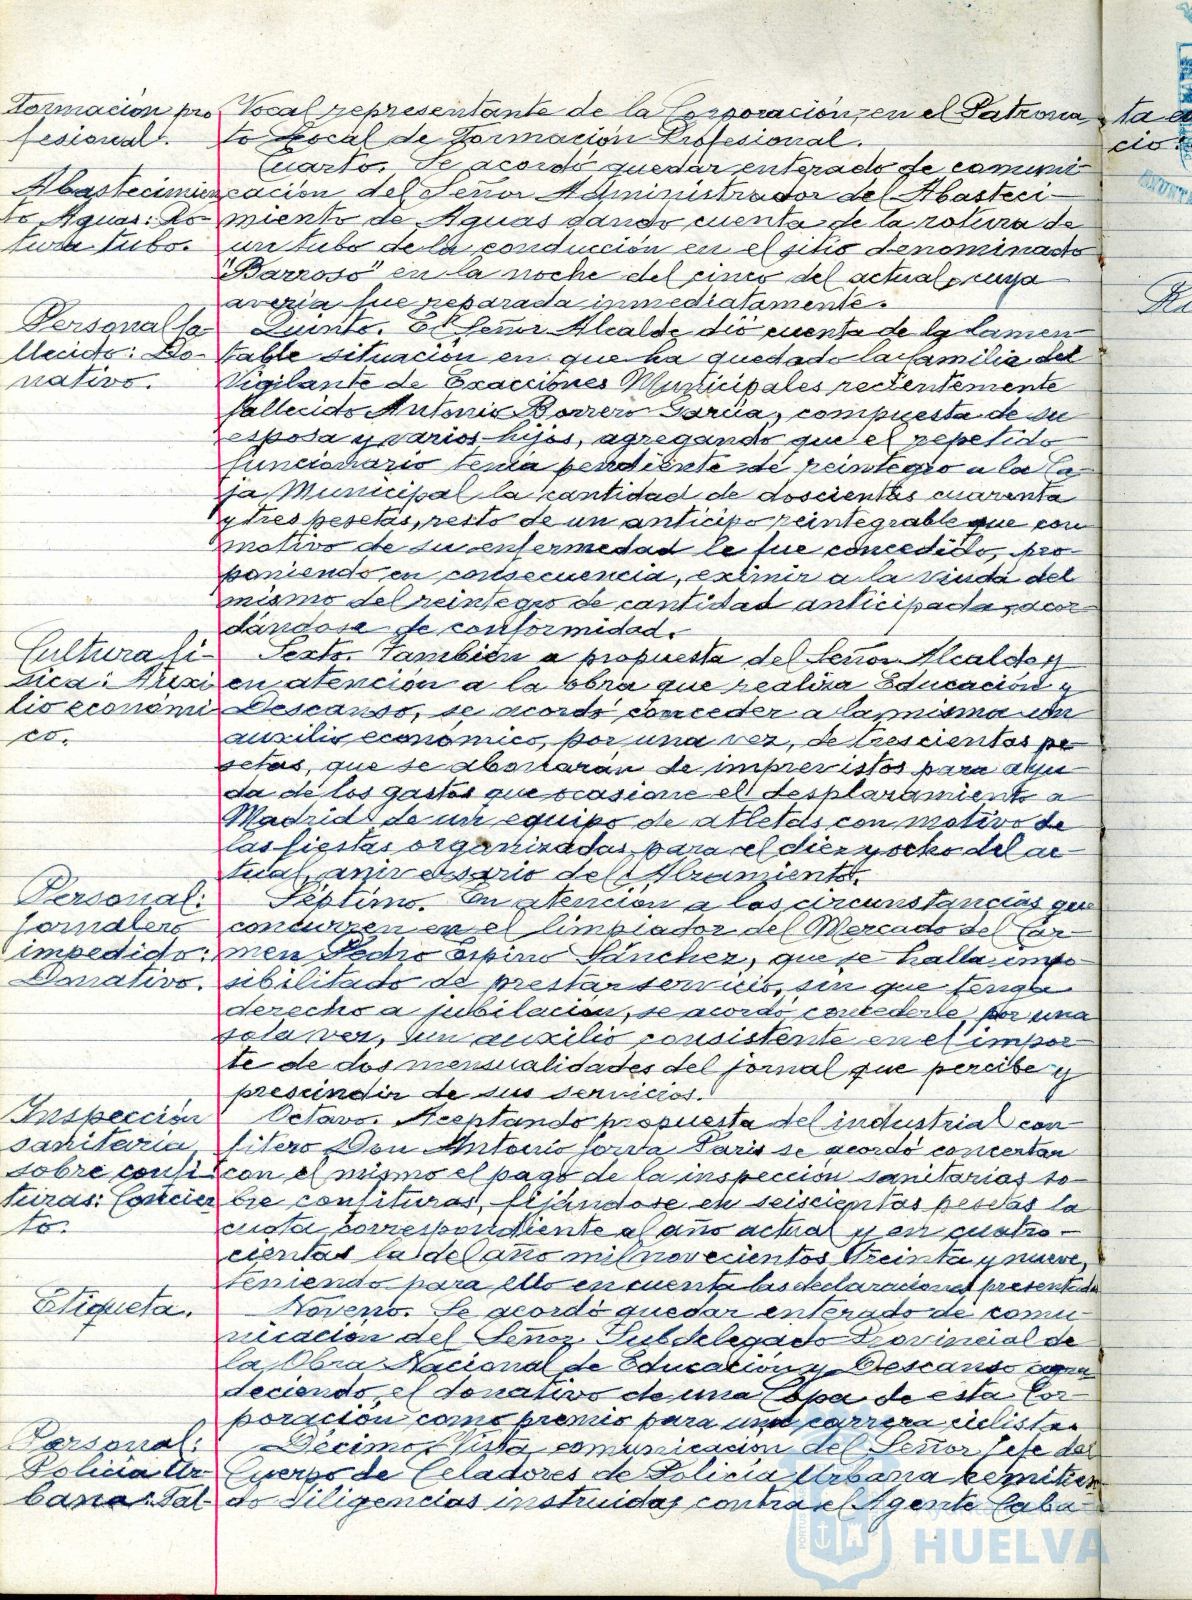 Formación pro
fesional.
Vocal representante de la Corporación, en el Patrona
to Local de Formación Profesional.
Abastecimien
to Aguas: Ro-
tura tubo.
Cuarto. Se acordó quedar enterado de comuni
cación del Señor Administrador del Abasteci-
miento de Aguas dando cuenta de la rotura de
un tubo de la conducción en el sitio denominado
"Barroso" en la noche del cinco del actual, cuya
avería fue reparada inmediatamente.
Personal fa-
llecido: Do-
nativo.
Quinto. El Señor Alcalde dió cuenta de la lamen
table situación en que ha quedado la familia del
Vigilante de Exacciones Municipales recientemente
fallecido Antonio Borrero García, compuesta de su
esposa y varios hijos, agregando que el repetido
funcionario tenía pendiente de reintegro a la Ca-
ja Municipal la cantidad de doscientas cuarenta
y tres pesetas, resto de un anticipo reintegrable que con
motivo de su enfermedad le fue concedido, pro-
poniendo en consecuencia, eximir a la viuda del
mismo del reintegro de cantidad anticipada, acor-
dándose de conformidad.
Cultura fí-
sica: Auxi
lio económi
co.
Sexto. También a propuesta del Señor Alcalde y
en atención a la obra que realiza Educación y
Descanso, se acordó conceder a la misma un
auxilio económico, por una vez, de trescientas pe
setas, que se abonarán de imprevistos para ayu
da de los gastos que ocasione el desplazamiento a
Madrid de un equipo de atletas con motivo de
las fiestas organizadas para el diez y ocho del ac-
tual, aniversario del Alzamiento.
Personal:
jornalero
impedido:
Donativo.
Séptimo. En atención a las circunstancias que
concurren en el limpiador del Mercado del Car-
men Pedro Espino Sánchez, que se halla impo-
sibilitado de prestar servicio, sin que tenga
derecho a jubilación, se acordó concederle por una
sola vez, un auxilio consistente en el impor-
te de dos mensualidades del jornal que percibe y
prescindir de sus servicios.
Inspección
sanitaria
sobre confi-
turas: Concier
to.
Octavo. Aceptando propuesta del industrial con-
fitero Don Antonio Jorva Paris se acordó concertar
con el mismo el pago de la inspección sanitarias so-
bre confituras, fijándose en seiscientas pesetas la
cuota correspondiente al año actual y en cuatro-
cientas la del año mil novecientos treinta y nueve,
teniendo para ello en cuenta las declaraciones presentadas
Etiqueta.
Noveno. Se acordó quedar enterado de comu-
nicación del Señor Subdelegado Provincial de
la Obra Nacional de Educación y Descanso agra
deciendo el donativo de una Copa de esta Cor-
poración como premio para una carrera ciclista.
Personal:
Policía Ur-
bana: Fal-
Décimo. Vista comunicación del Señor Jefe del
Cuerpo de Celadores de Policía Urbana remitien-
do diligencias instruidas contra el Agente Caba-
HUELVA